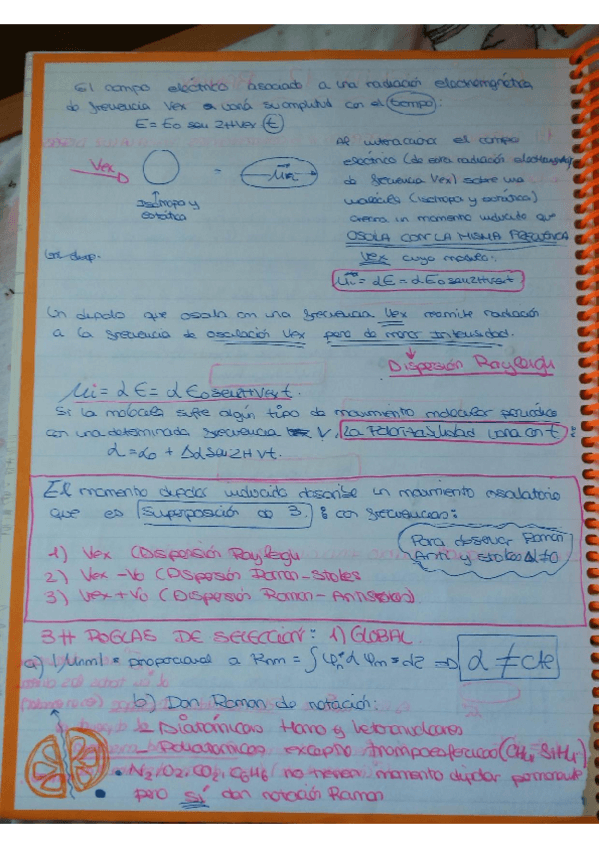 El campo eléctrico asociado a una radiación electromagnética
de frecuencia Vex varía su amplitud con el tiempo:
E = E0 sen 2πVex t
Vex
=
Isótropa y
estática
Al interaccionar el campo
eléctrico (de esta radiación electromag
de frecuencia Vex) sobre una
molécula (isótropa y estática)
genera un momento inducido que
OSCILA CON LA MISMA FRECUENCIA
Vex cuyo módulo:
= αE = αE0 sen2πVext
Un dipolo que oscila con una frecuencia Vex reemite radiación
a la frecuencia de oscilación Vex pero de menor intensidad.
Dispersión Rayleigh
μi = αE = αE0 sen2πVext.
Si la molécula sufre algún tipo de movimiento molecular periódico
con una determinada frecuencia V, la Polarizabilidad varía con t:
α = α0 + Δα sen 2πVt.
El momento dipolar inducido describe un movimiento oscilatorio
que es Superposición de 3: con frecuencias:
1) Vex (Dispersión Rayleigh
2) Vex - Vo (Dispersión Raman-Stokes
3) Vex + Vo (Dispersión Raman-
Para observar Raman
Anti y stokes Δα≠0
3 # REGLAS DE SELECCIÓN: 1) GLOBAL
a) proporcional a = ∫ => α ≠ cte
b) Dan Raman de rotación:
Diatómicas Homo y heteronucleares
Poliatómicas excepto (CH4, SiH4)
• N2, O2, CO2, C6H6 no tienen momento dipolar permanente
pero sí dan rotación Raman